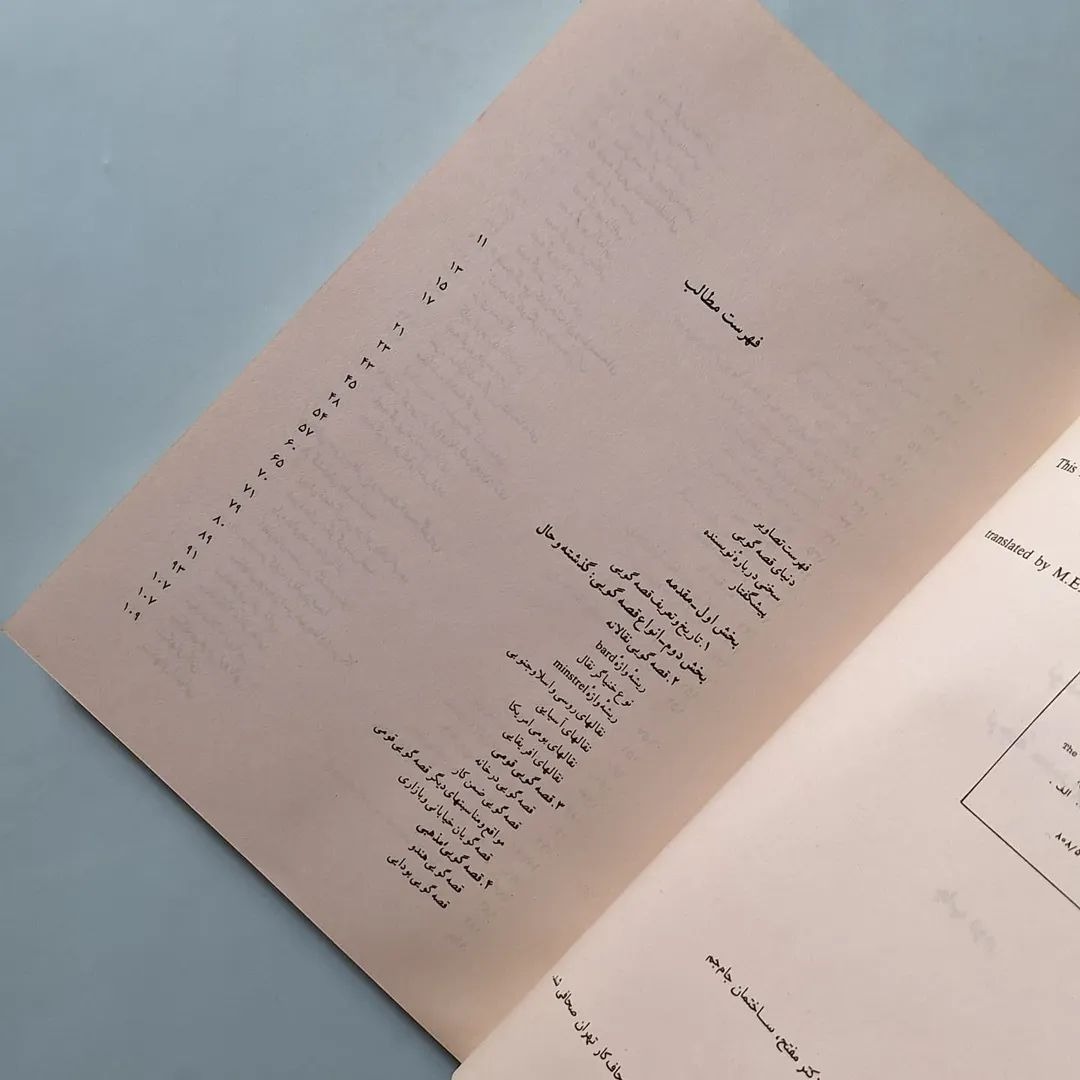 فهرست مطالب
فهرست تصاویر ۱۱
دنیای قصه گویی ۱۳
سخنی دربارهٔ نویسنده ۱۵
پیشگفتار ۱۷
بخش اول ـ مقدمه ۲۱
۱. تاریخ و تعریف قصه گویی ۲۳
بخش دوم ـ انواع قصه گویی: گذشته و حال ۴۳
۲. قصه گویی نقالانه ۴۵
ریشهٔ واژهٔ bard ۴۸
نوع خنیاگر نقال ۵۴
ریشهٔ واژهٔ minstrel ۵۷
نقالهای روسی و اسلاو جنوبی ۶۰
نقالهای آسیایی ۶۵
نقالهای بومی امریکا ۷۰
نقالهای افریقایی ۷۱
۳. قصه گویی قومی ۷۹
قصه گویی در خانه ۸۰
قصه گویی ضمن کار ۸۹
مواقع و مناسبتهای دیگر قصه گویی قومی ۹۱
قصه گویان خیابانی و بازاری ۹۳
۴. قصه گویی مذهبی ۱۰۷
قصه گویی هندو ۱۰۷
قصه گویی بودایی ۱۰۹
This
translated by M.E.
The
الف.
۸۰۸/۵
دکتر مفتح، ساختمان جام جم
تهران صحافی